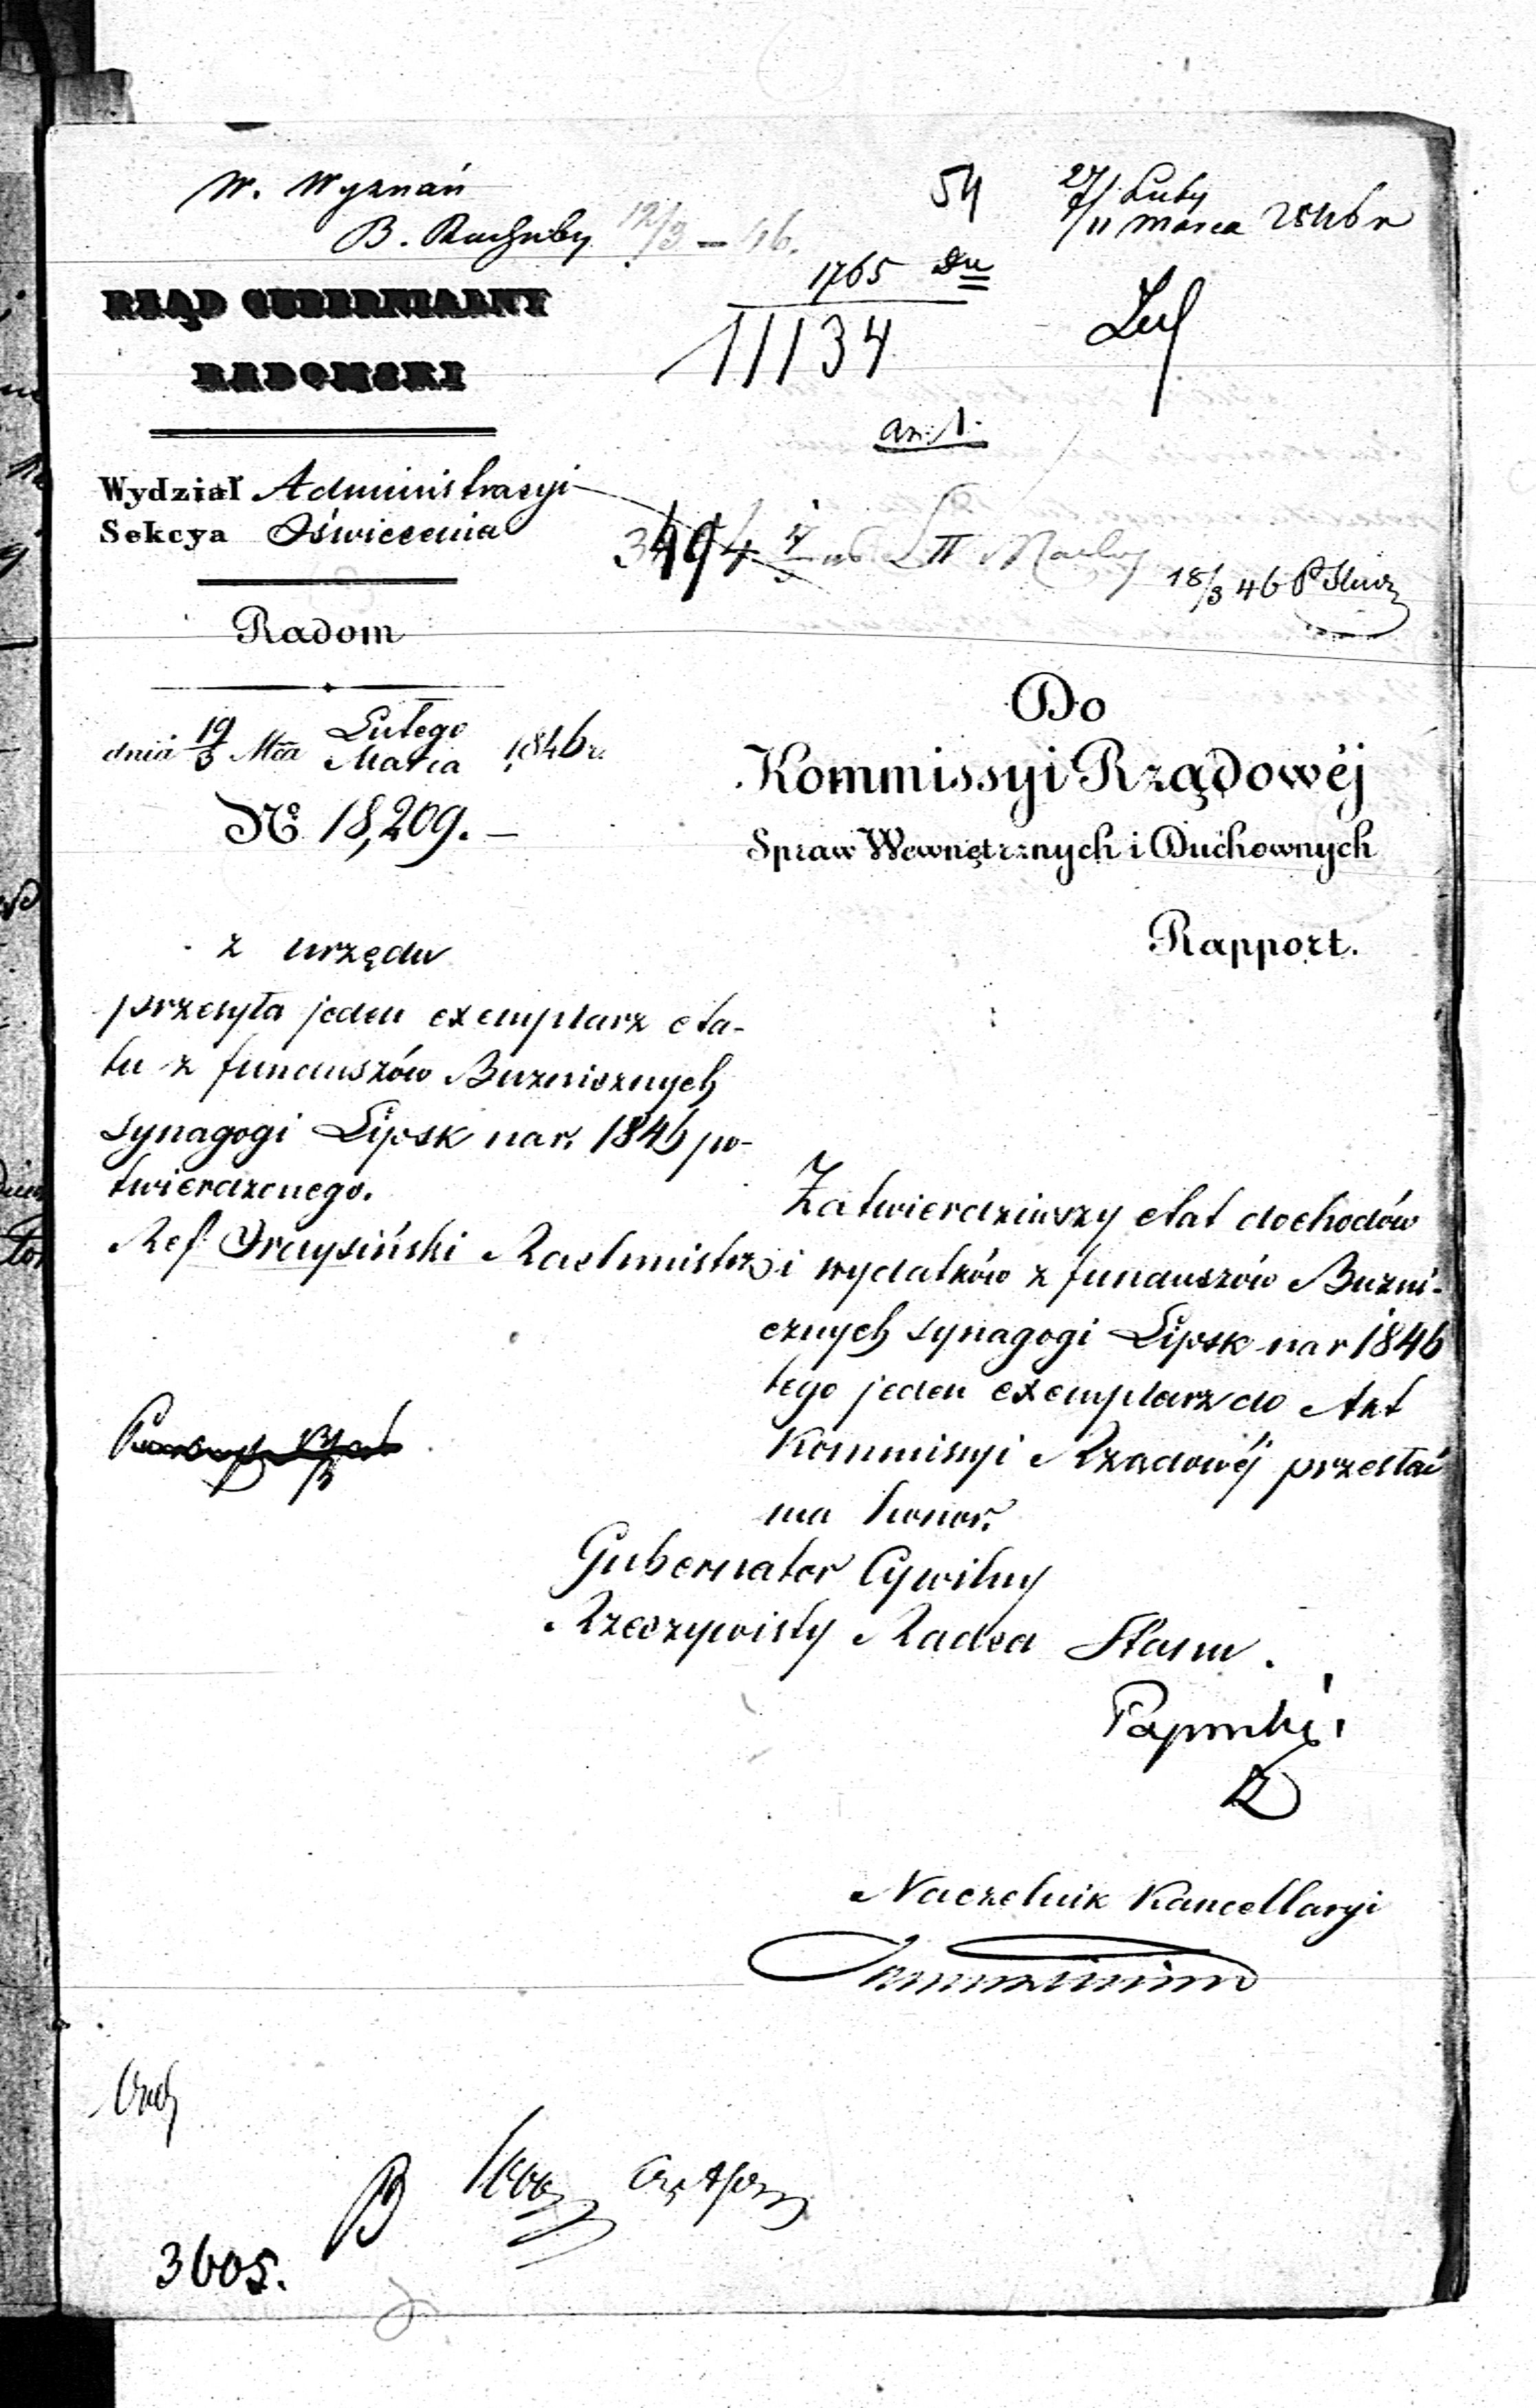 W. Wyznań
B. Rachuby 12/3 – 46.
54
27/11 Luty
Marca 1846 r
1765
11134
an: 1.
RZĄD GUBERNIALNY
RADOMSKI
Wydział Administracyi
Sekcya Oświecenia
3494
18/3 46
Radom
dnia 19/3 Mca Lutego
Marca 1846 r.
No 18,209. –
Do
Kommissyi Rządowéj
Spraw Wewnętrznych i Duchownych
Rapport.
z urzędu
przesyła jeden exemplarz eta-
tu z funduszów Buznicznych
synagogi Lipsk na r. 1846 po-
twierdzonego.
Ref Rachmistrz
Zatwierdziwszy etat dochodów
i wydatków z funduszów Buzni-
cznych synagogi Lipsk na r 1846
tego jeden exemplarz do Akt
Kommissyi Rządowéj przesłać
ma honor.
Gubernator Cywilny
Rzeczywisty Radca Stanu.
Naczelnik Kancellaryi
3605.